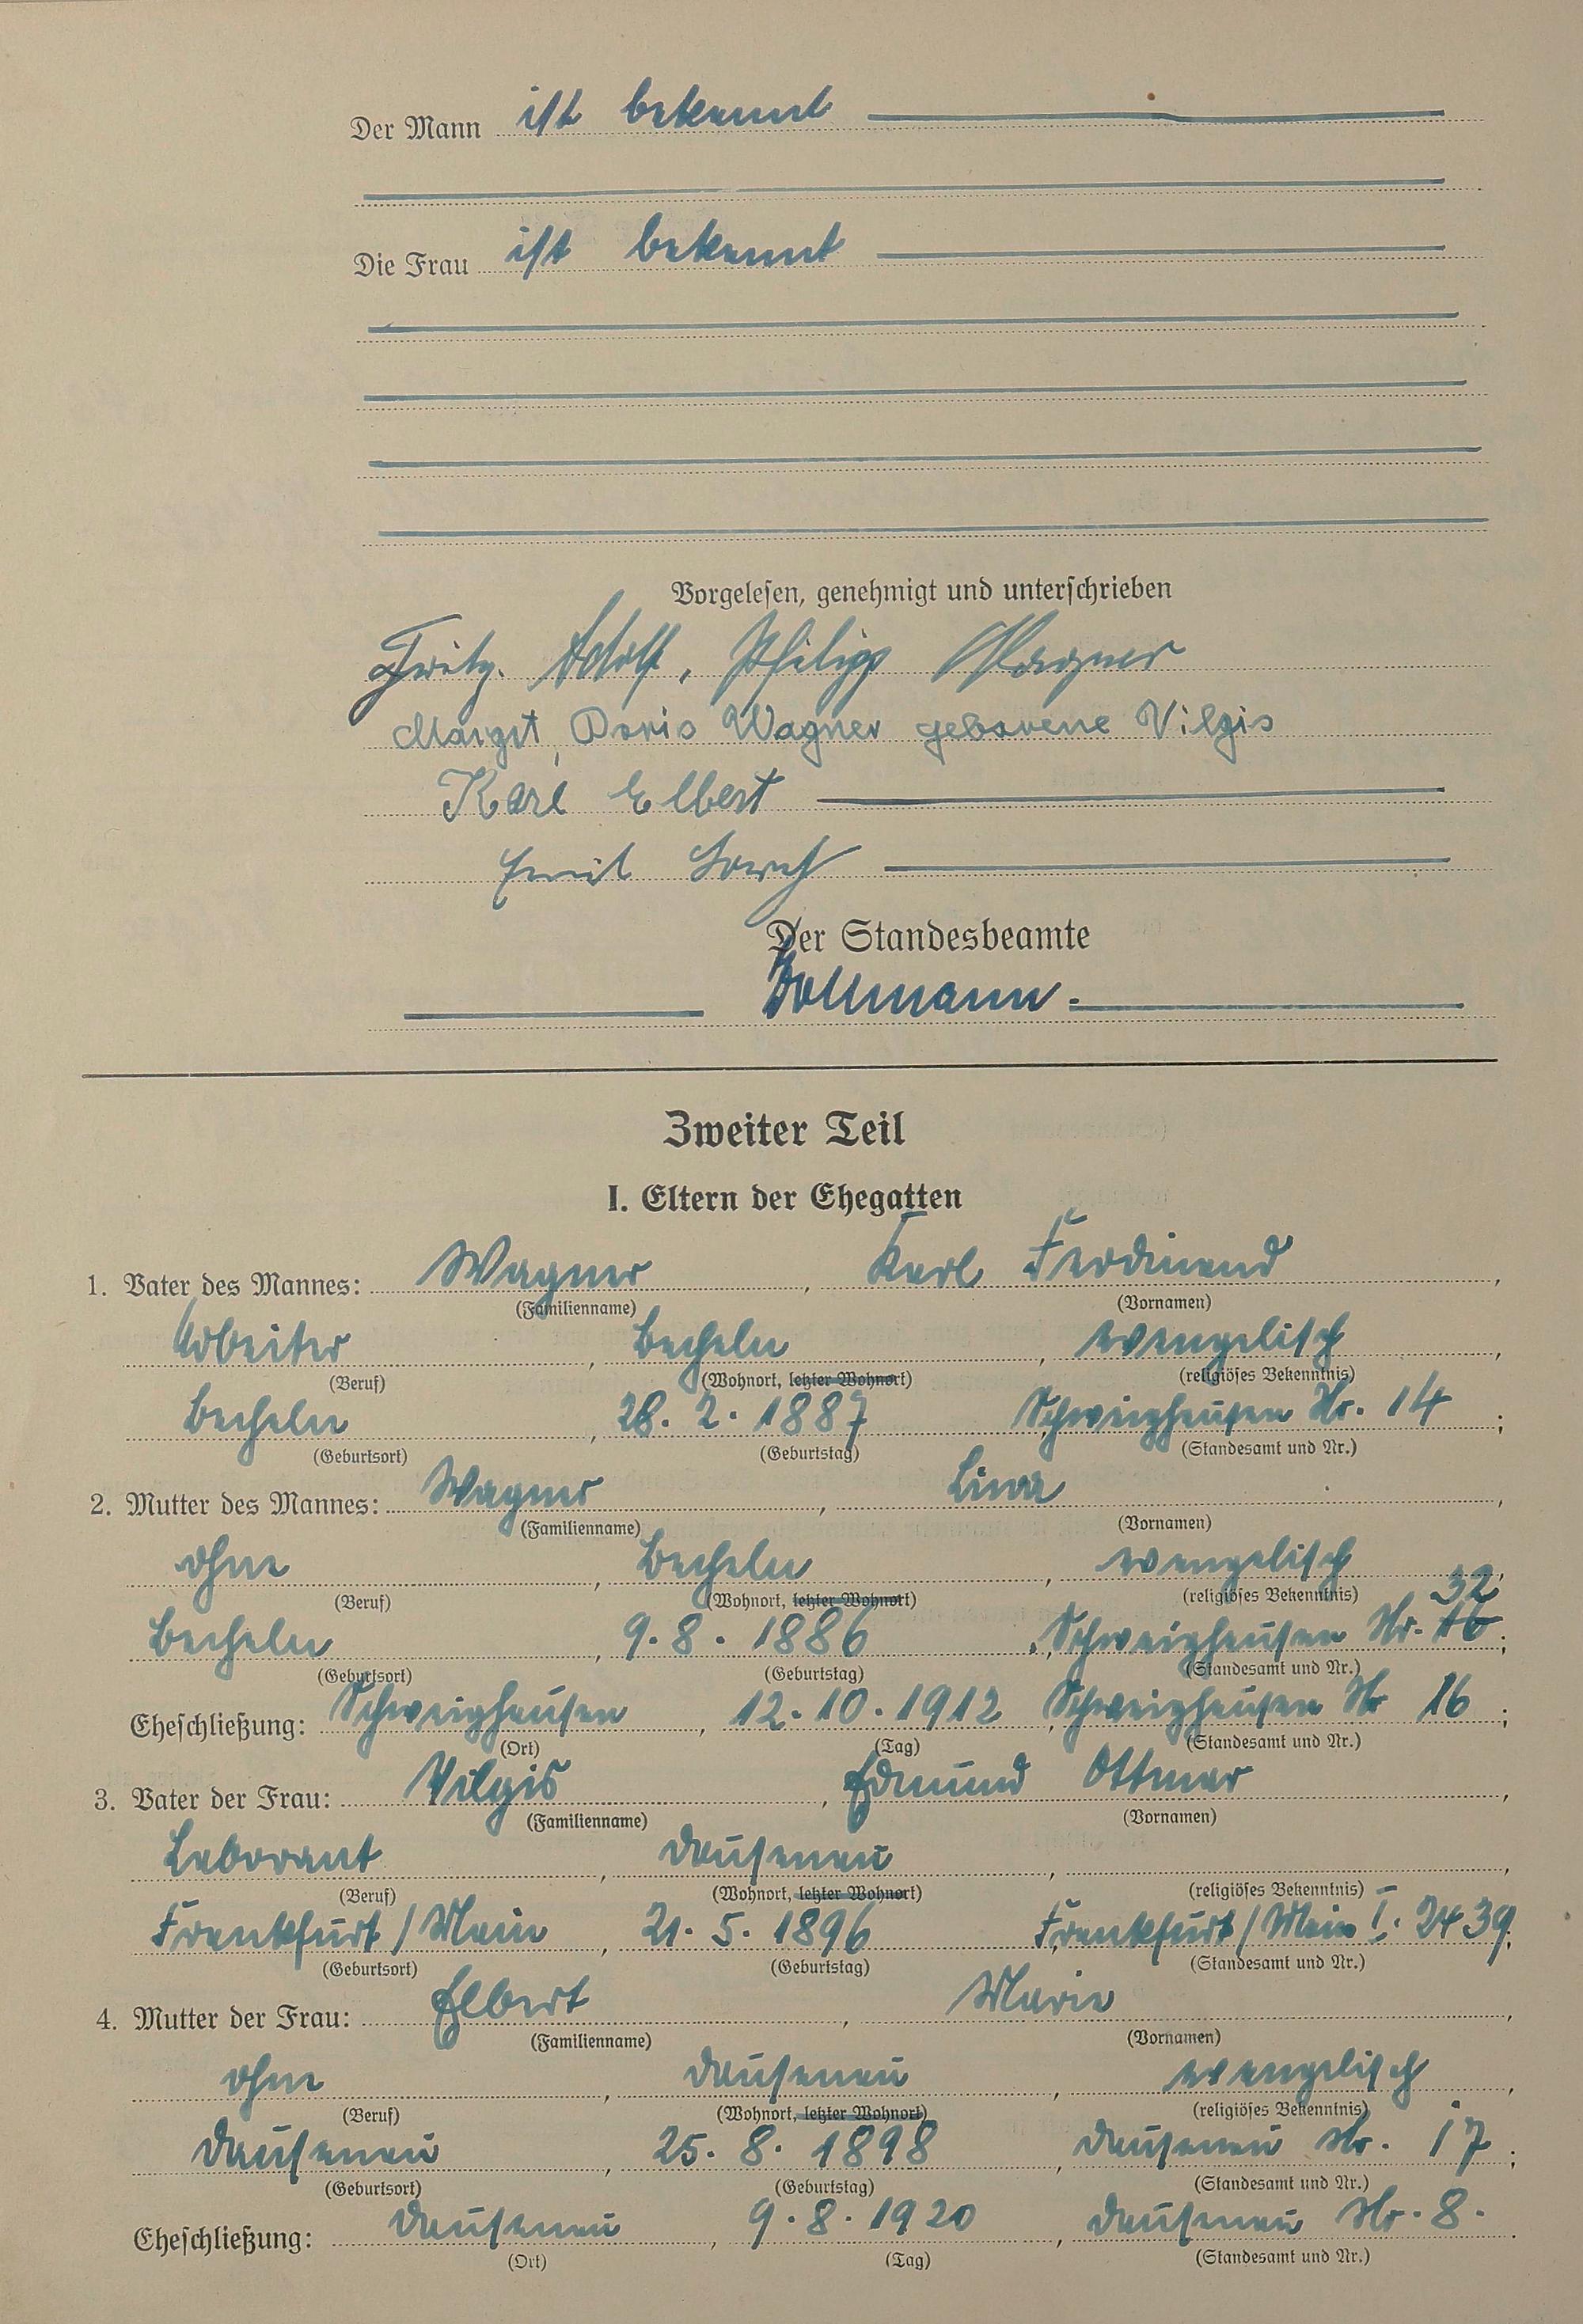 Der Mann ist bekannt
Die Frau ist bekannt
Vorgelesen, genehmigt und unterschrieben
Fritz. Adolf, Philipp Wagner
Margot, Doris Wagner geborene Vilgis
Karl Elbert
Emil
Der Standesbeamte
Dollmann.
Zweiter Teil
I. Eltern der Ehegatten
1. Vater des Mannes: Wagner, Karl Ferdinand,
(Familienname) (Vornamen)
Arbeiter, Becheln, evangelisch,
(Beruf) (Wohnort, letzter Wohnort) (religiöses Bekenntnis)
Becheln, 28. 2. 1887 Schweighausen Nr. 14;
(Geburtsort) (Geburtstag) (Standesamt und Nr.)
2. Mutter des Mannes: Wagner, Lina,
(Familienname) (Vornamen)
ohne, Becheln, evangelisch,
(Beruf) (Wohnort, letzter Wohnort) (religiöses Bekenntnis) 32
Becheln, 9. 8. 1886, Schweighausen Nr. 16;
(Geburtsort) (Geburtstag) (Standesamt und Nr.)
Eheschließung: Schweighausen, 12. 10. 1912, Schweighausen Nr 16;
(Ort) (Tag) (Standesamt und Nr.)
3. Vater der Frau: Vilgis, Edmund Ottmar,
(Familienname) (Vornamen)
Laborant, Dausenau, ,
(Beruf) (Wohnort, letzter Wohnort) (religiöses Bekenntnis)
Frankfurt/Main, 21. 5. 1896 Frankfurt/Main I. 2439;
(Geburtsort) (Geburtstag) (Standesamt und Nr.)
4. Mutter der Frau: Elbert, Marie,
(Familienname) (Vornamen)
ohne, Dausenau, evangelisch,
(Beruf) (Wohnort, letzter Wohnort) (religiöses Bekenntnis)
Dausenau, 25. 8. 1898, Dausenau Nr. 17;
(Geburtsort) (Geburtstag) (Standesamt und Nr.)
Eheschließung: Dausenau, 9. 8. 1920, Dausenau Nr. 8.
(Ort) (Tag) (Standesamt und Nr.)